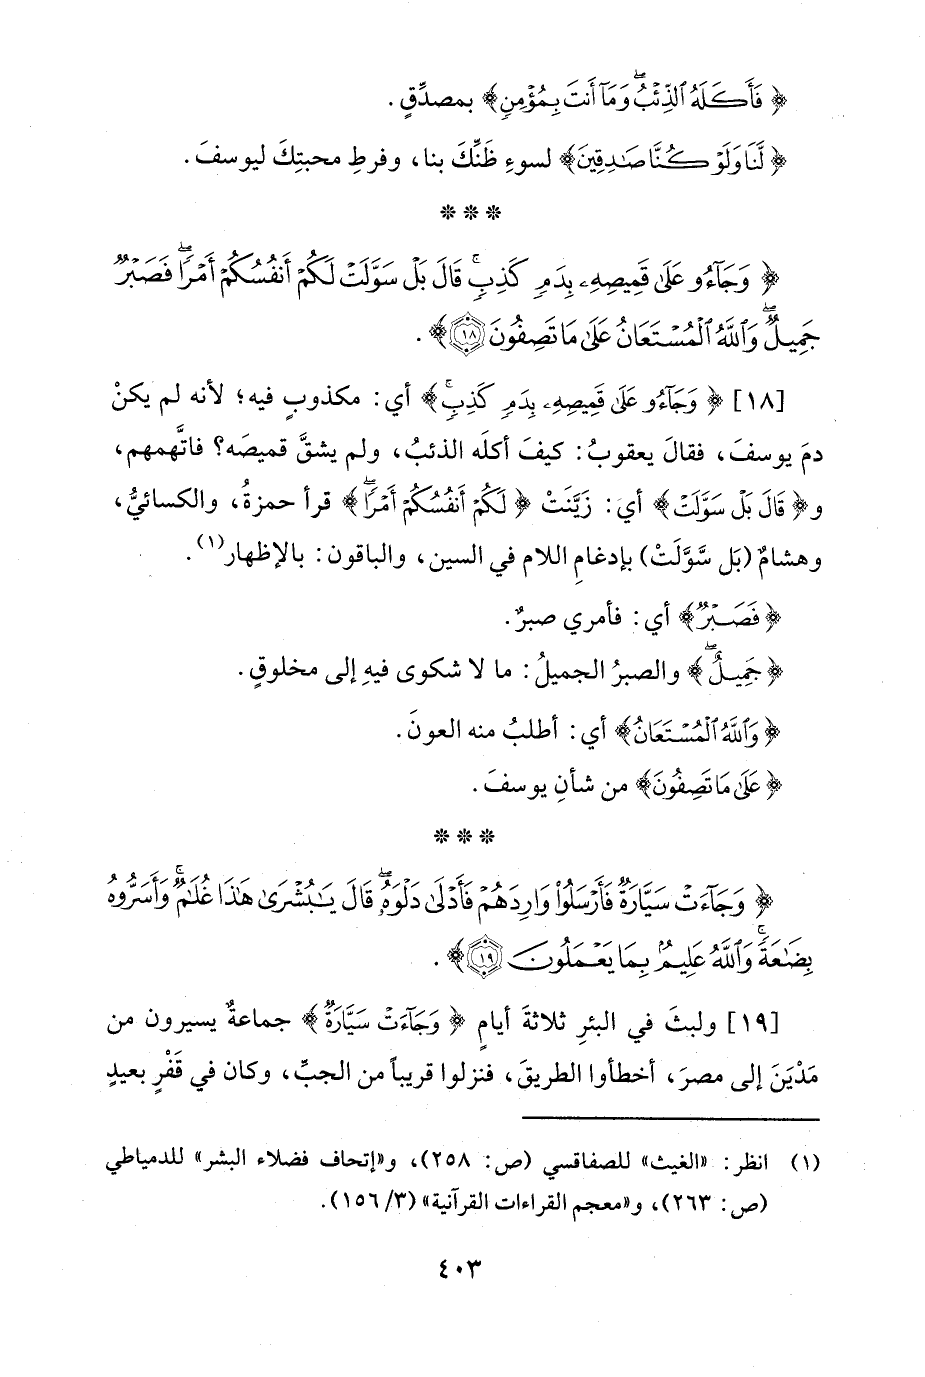 ﴿ فَأَكَلَهُ ٱلذِّئْبُۖ وَمَآ أَنتَ بِمُؤْمِنٍ﴾ بمصدِّقٍ.
﴿ لَّنَا وَلَوْ كُنَّا صَٰدِقِينَ﴾ لسوءِ ظَنِّكَ بنا، وفرطِ محبتِكَ ليوسفَ.
* * *
﴿ وَجَآءُو عَلَىٰ قَمِيصِهِۦ بِدَمٍ كَذِبٍۚ قَالَ بَلْ سَوَّلَتْ لَكُمْ أَنفُسُكُمْ أَمْرًاۖ فَصَبْرٌ
جَمِيلٌۖ وَٱللَّهُ ٱلْمُسْتَعَانُ عَلَىٰ مَا تَصِفُونَ ١٨﴾ .
[١٨] ﴿ وَجَآءُو عَلَىٰ قَمِيصِهِۦ بِدَمٍ كَذِبٍۚ﴾ أي: مكذوبٍ فيه؛ لأنه لم يكنْ
دمَ يوسفَ، فقالَ يعقوبُ: كيفَ أكلَه الذئبُ، ولم يشقَّ قميصَه؟ فاتَّهمهم،
و﴿ قَالَ بَلْ سَوَّلَتْ﴾ أي: زَيَّنَتْ ﴿ لَكُمْ أَنفُسُكُمْ أَمْرًاۖ﴾ قرأ حمزةُ، والكسائيُّ،
وهشامٌ (بَل سَّوَّلَتْ) بإدغامِ اللام في السين، والباقون: بالإظهار(١).
﴿ فَصَبْرٌ﴾ أي: فأمري صبرٌ.
﴿ جَمِيلٌۖ﴾ والصبرُ الجميلُ: ما لا شكوى فيهِ إلى مخلوقٍ.
﴿ وَٱللَّهُ ٱلْمُسْتَعَانُ﴾ أي: أطلبُ منه العونَ.
﴿ عَلَىٰ مَا تَصِفُونَ﴾ من شأنِ يوسفَ.
* * *
﴿ وَجَآءَتْ سَيَّارَةٌ فَأَرْسَلُوا۟ وَارِدَهُمْ فَأَدْلَىٰ دَلْوَهُۥۖ قَالَ يَٰبُشْرَىٰ هَٰذَا غُلَٰمٌۚ وَأَسَرُّوهُ
بِضَٰعَةًۚ وَٱللَّهُ عَلِيمٌۢ بِمَا يَعْمَلُونَ ١٩﴾ .
[١٩] ولبثَ في البئرِ ثلاثةَ أيامٍ ﴿ وَجَآءَتْ سَيَّارَةٌ﴾ جماعةٌ يسيرون من
مَدْيَنَ إلى مصرَ، أخطأوا الطريقَ، فنزلوا قريباً من الجبِّ، وكان في قَفْرٍ بعيدٍ
(١) انظر: «الغيث» للصفاقسي (ص: ٢٥٨)، و«إتحاف فضلاء البشر» للدمياطي
(ص: ٢٦٣)، و«معجم القراءات القرآنية» (٣/ ١٥٦).
٤٠٣